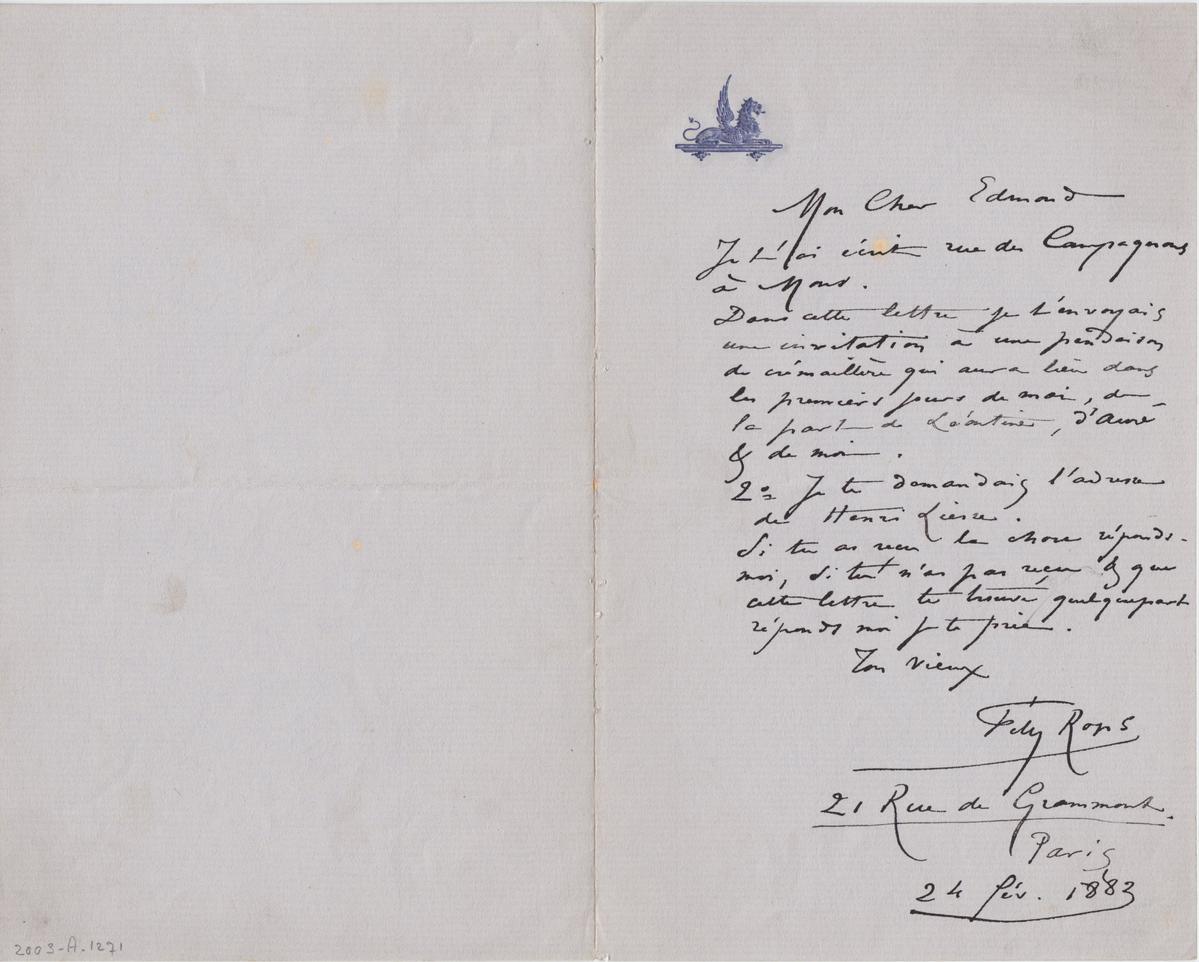 Mon Cher Edmond
Je t'ai écrit rue des Compagnons
à Mons.
Dans cette lettre je t'envoyais
une invitation à une pendaison
de crémaillère qui aura lieu dans
les premiers jours de mai, de
la part de Léontine, d'Auré
& de moi.
2º Je te demandais l'adresse
de Henri Liesse.
Si tu as reçu la chose réponds-
moi, si tu n'as pas reçu & que
cette lettre te trouve quelquepart
réponds moi je te prie.
Ton vieux
Fély Rops
21 Rue de Grammont.
Paris
24 fév. 1883
2003-A-1271